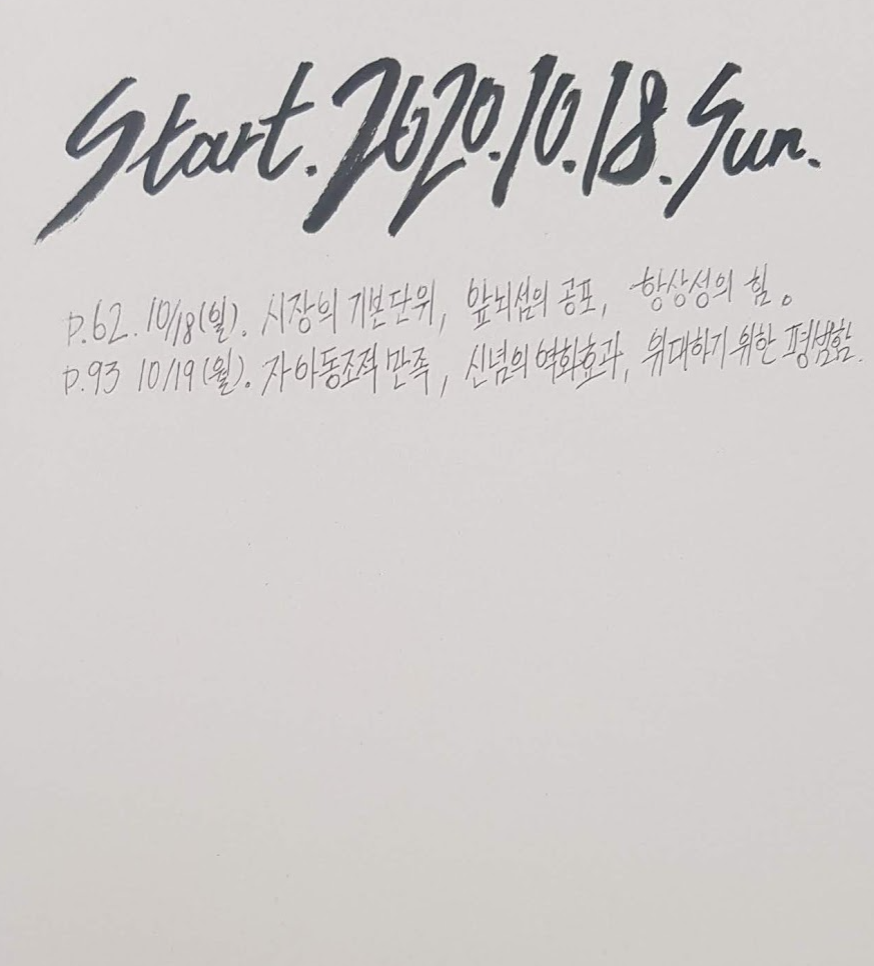 Start. 2020.10.18. Sun.
p.62. 10/18(일). 시장의 기본단위, 앞뇌섬의 공포, 항상성의 힘。
p.93 10/19(월). 자아동조적 만족, 신념의 역화효과, 위대하기 위한 평범함.